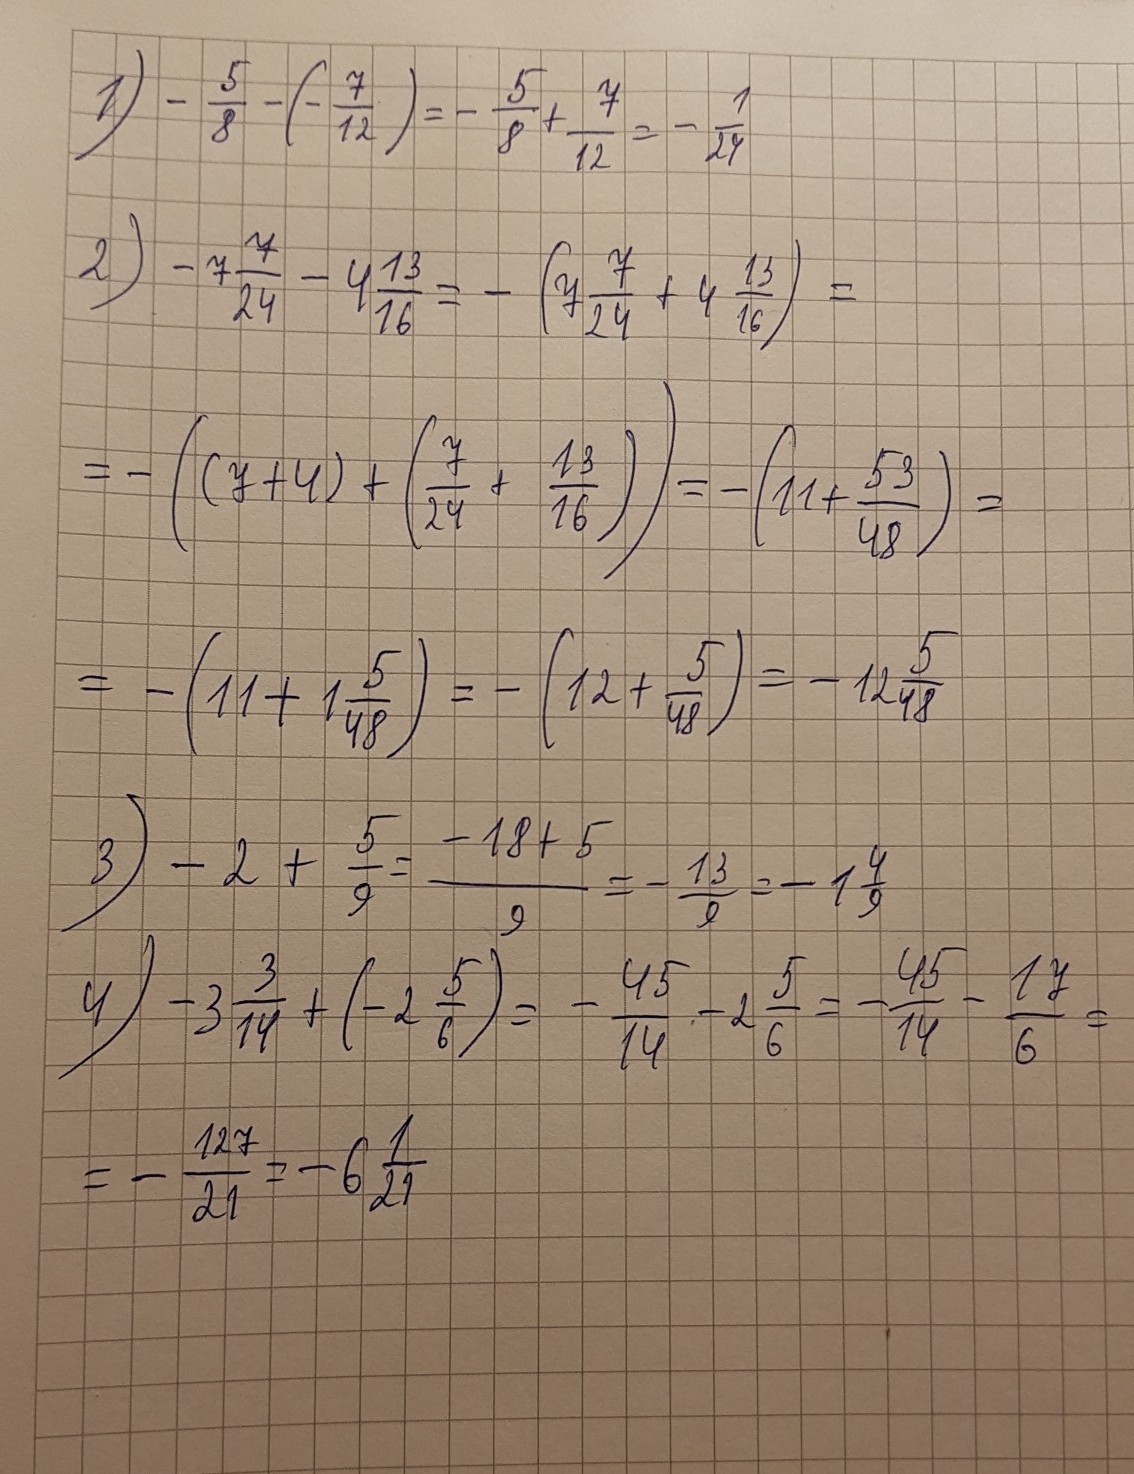 1) - 5/8 - (- 7/12) = - 5/8 + 7/12 = - 1/24
2) - 7 7/24 - 4 13/16 = - (7 7/24 + 4 13/16) =
= - ((7+4) + (7/24 + 13/16)) = - (11 + 53/48) =
= - (11 + 1 5/48) = - (12 + 5/48) = - 12 5/48
3) - 2 + 5/9 = (-18 + 5)/9 = - 13/9 = - 1 4/9
4) - 3 3/14 + (- 2 5/6) = - 45/14 - 2 5/6 = - 45/14 - 17/6 =
= - 127/21 = - 6 1/21